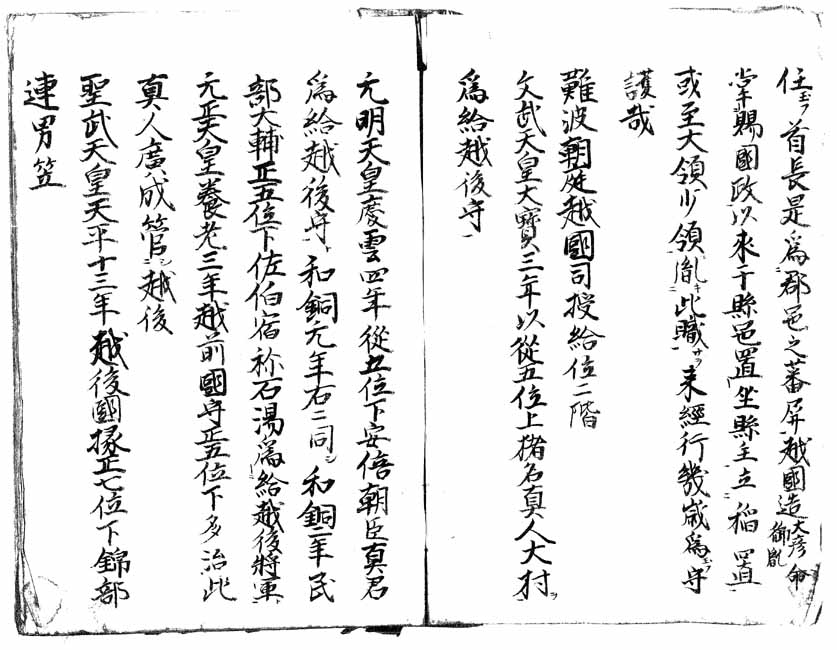 任玉フ首長是為郡邑之蕃屏越國造大彦命御胤
掌賜國政以來于縣邑置坐縣主立稲置
或至大領少領胤此職来經行幾歳為守
護哉
難波朝庭越國司授給位二階
文武天皇大寳三年以從五位上猪名真人大村ヲ
為給越後守
元明天皇慶雲四年從五位下安倍朝臣真君
為給越後守和銅元年右ニ同シ和銅二年民
部大輔正五位下佐伯宿祢石湯為給越後將軍
元正天皇養老三年越前國守正五位下多治比
真人廣成管シ越後
聖武天皇天平十三年越後國掾正七位下錦部
連男笠